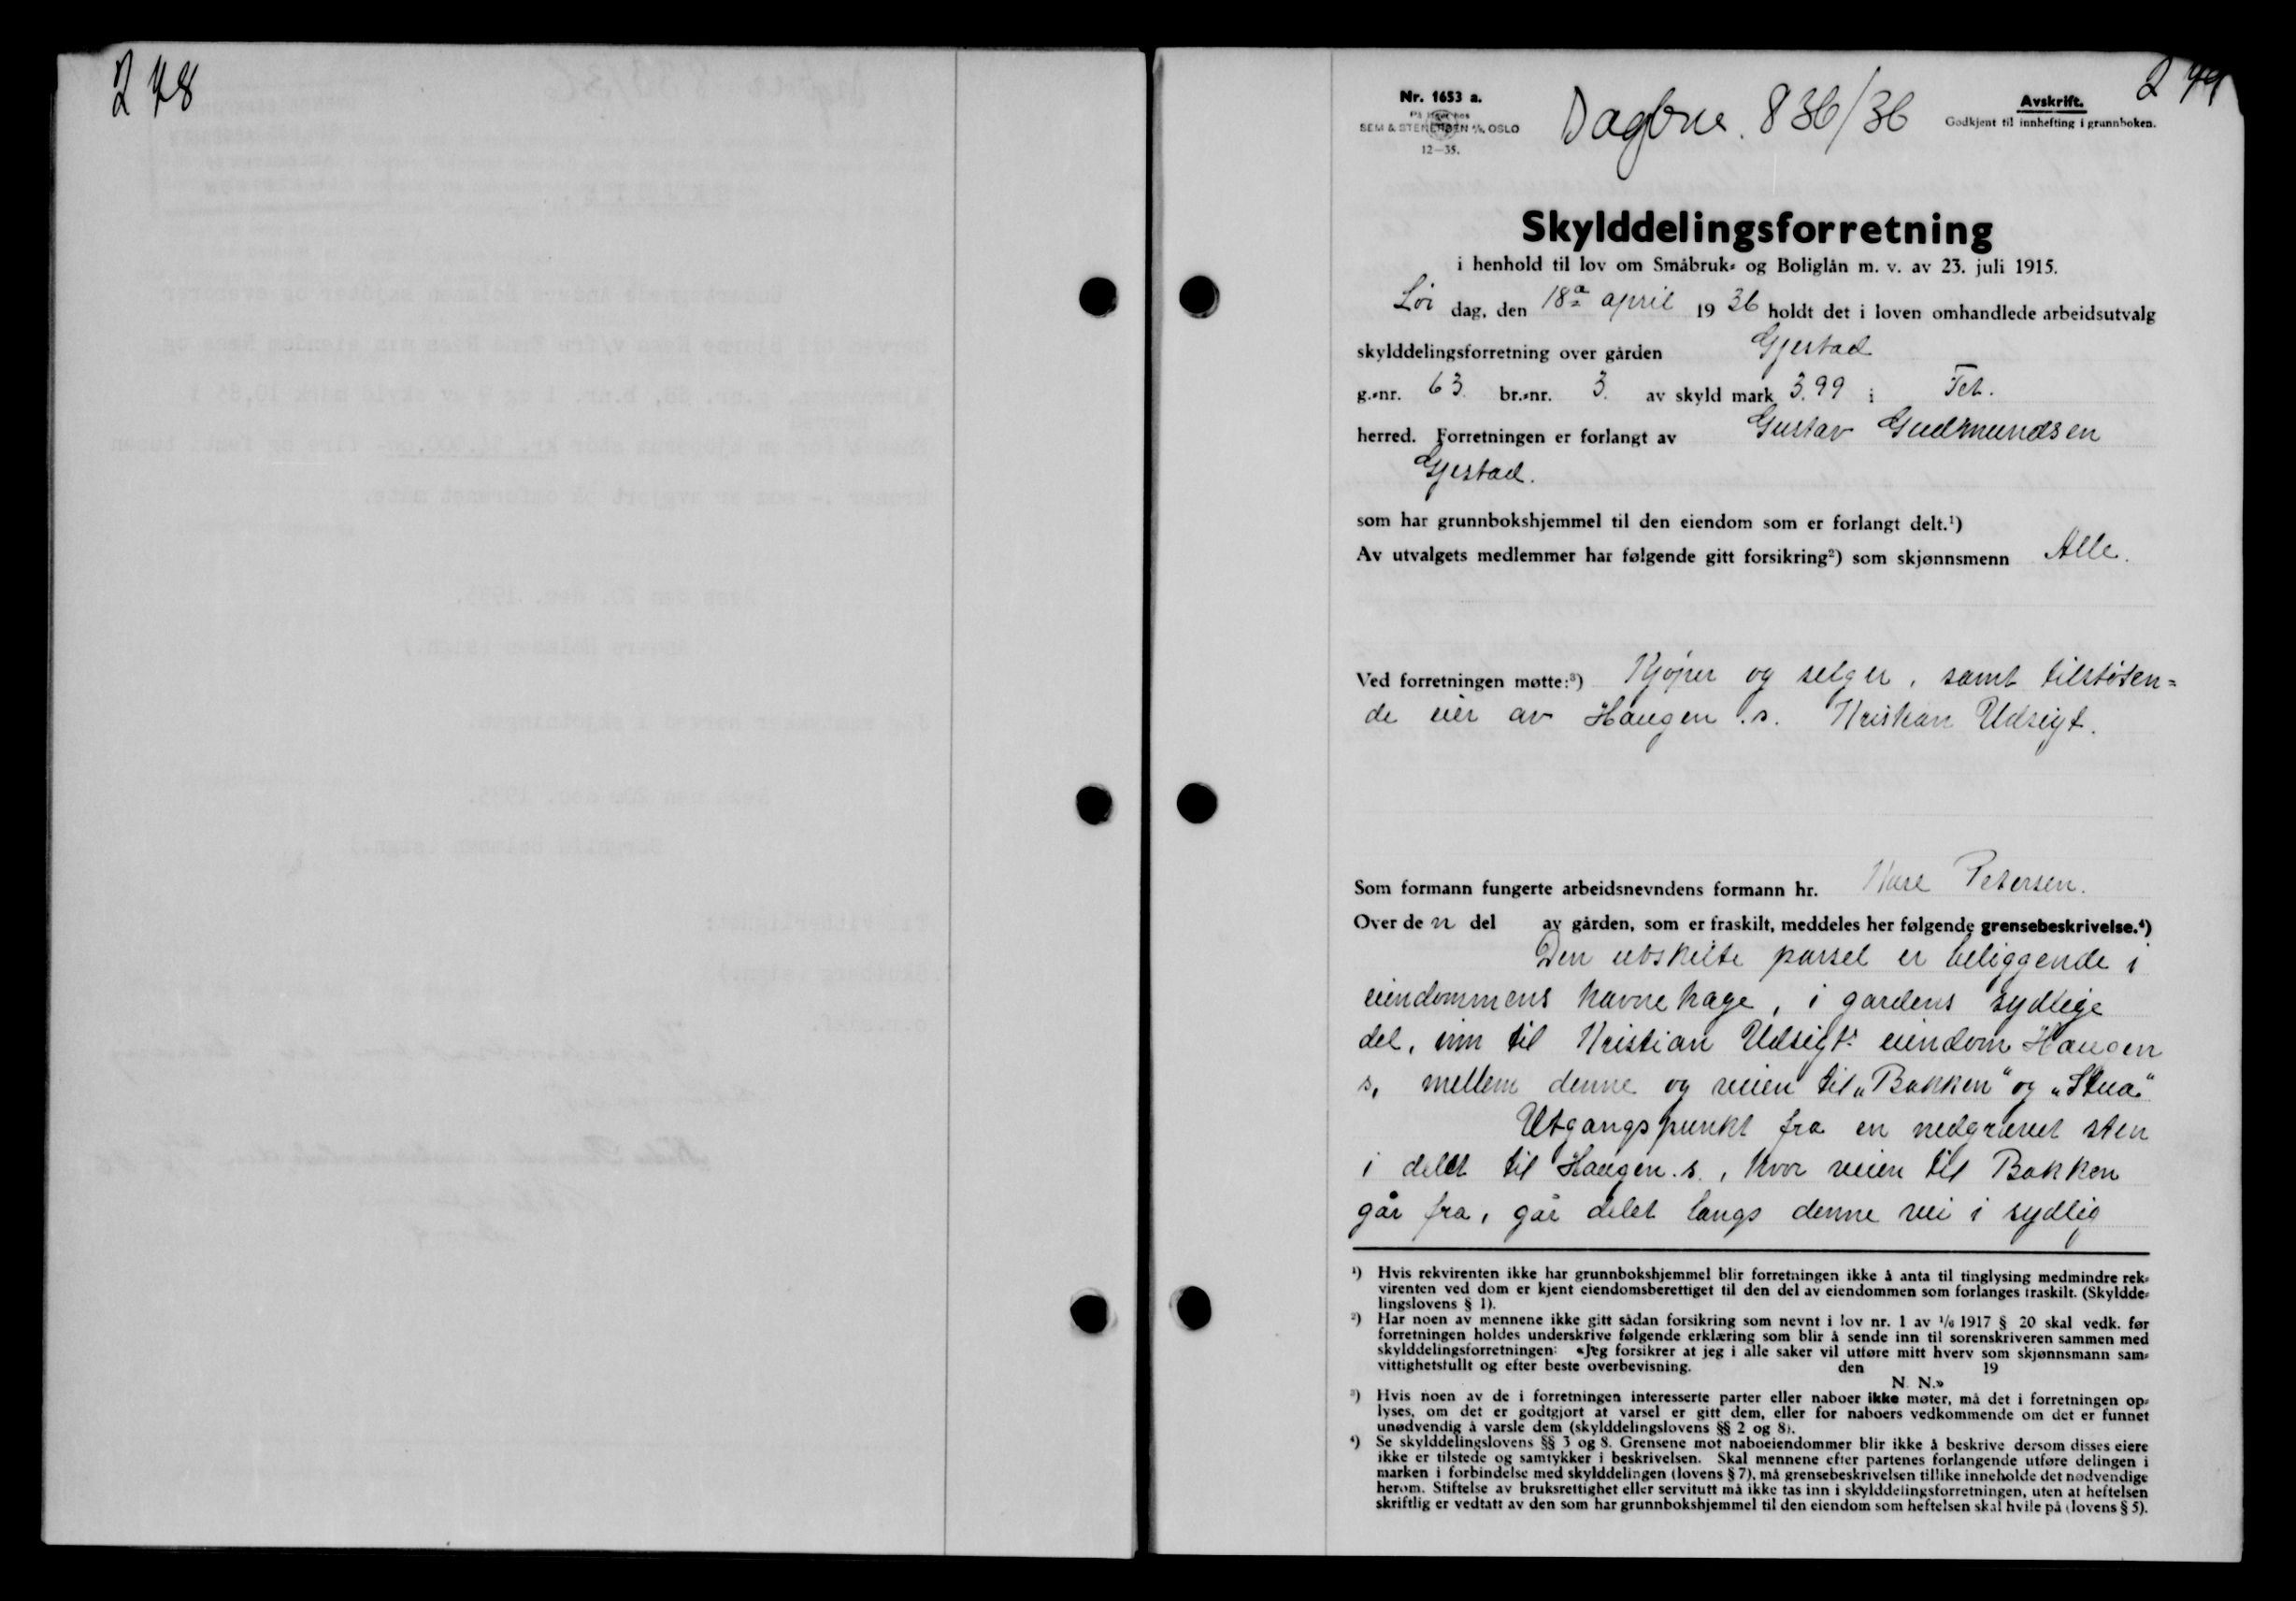 278
279
Nr. 1653 a.
På lager hos
SEM & STENERSEN A/S, OSLO
12—35.
Dagbnr. 836/36
Avskrift.
Godkjent til innhefting i grunnboken.
Skylddelingsforretning
i henhold til lov om Småbruk- og Boliglån m. v. av 23. juli 1915.
Lör dag, den 18de april 1936 holdt det i loven omhandlede arbeidsutvalg
skylddelingsforretning over gården Gjestad
g.-nr. 63. br.-nr. 3. av skyld mark 3.99 i Fet.
herred. Forretningen er forlangt av Gustav Gudmundsen
Gjestad.
som har grunnbokshjemmel til den eiendom som er forlangt delt.¹)
Av utvalgets medlemmer har følgende gitt forsikring²) som skjønnsmenn Alle.
Ved forretningen møtte:³) Kjöper og selger, samt tilstöten=
de eier av Haugen s. Kristian Udsigt.
Som formann fungerte arbeidsnevndens formann hr. Kare Petersen.
Over den del av gården, som er fraskilt, meddeles her følgende grensebeskrivelse.⁴)
Den utskilte parsel er beliggende i
eiendommens havnehage, i gardens sydlige
del, inn til Kristian Udsigts eiendom Haugen
s, mellem denne og veien til „Bakken" og „Stua"
Utgangspunkt fra en nedgravet sten
i delet til Haugen. s., hvor veien til Bakken
går fra, går delet langs denne vei i sydlig
¹) Hvis rekvirenten ikke har grunnbokshjemmel blir forretningen ikke å anta til tinglysing medmindre rek-
virenten ved dom er kjent eiendomsberettiget til den del av eiendommen som forlanges fraskilt. (Skyldde-
lingslovens § 1).
²) Har noen av mennene ikke gitt sådan forsikring som nevnt i lov nr. 1 av ¹/₆ 1917 § 20 skal vedk. før
forretningen holdes underskrive følgende erklæring som blir å sende inn til sorenskriveren sammen med
skylddelingsforretningen: «Jeg forsikrer at jeg i alle saker vil utføre mitt hverv som skjønnsmann sam-
vittighetsfullt og efter beste overbevisning. den 19
N. N.»
³) Hvis noen av de i forretningen interesserte parter eller naboer ikke møter, må det i forretningen op-
lyses, om det er godtgjort at varsel er gitt dem, eller for naboers vedkommende om det er funnet
unødvendig å varsle dem (skylddelingslovens §§ 2 og 8).
⁴) Se skylddelingslovens §§ 3 og 8. Grensene mot naboeiendommer blir ikke å beskrive dersom disses eiere
ikke er tilstede og samtykker i beskrivelsen. Skal mennene efter partenes forlangende utføre delingen i
marken i forbindelse med skylddelingen (lovens § 7), må grensebeskrivelsen tillike inneholde det nødvendige
herom. Stiftelse av bruksrettighet eller servitutt må ikke tas inn i skylddelingsforretningen, uten at heftelsen
skriftlig er vedtatt av den som har grunnbokshjemmel til den eiendom som heftelsen skal hvile på (lovens § 5).